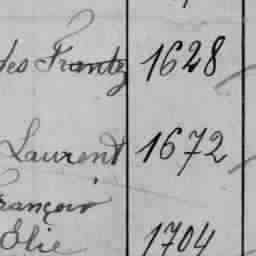 des Frantz 1628
Laurent 1672
François
Elie 1704